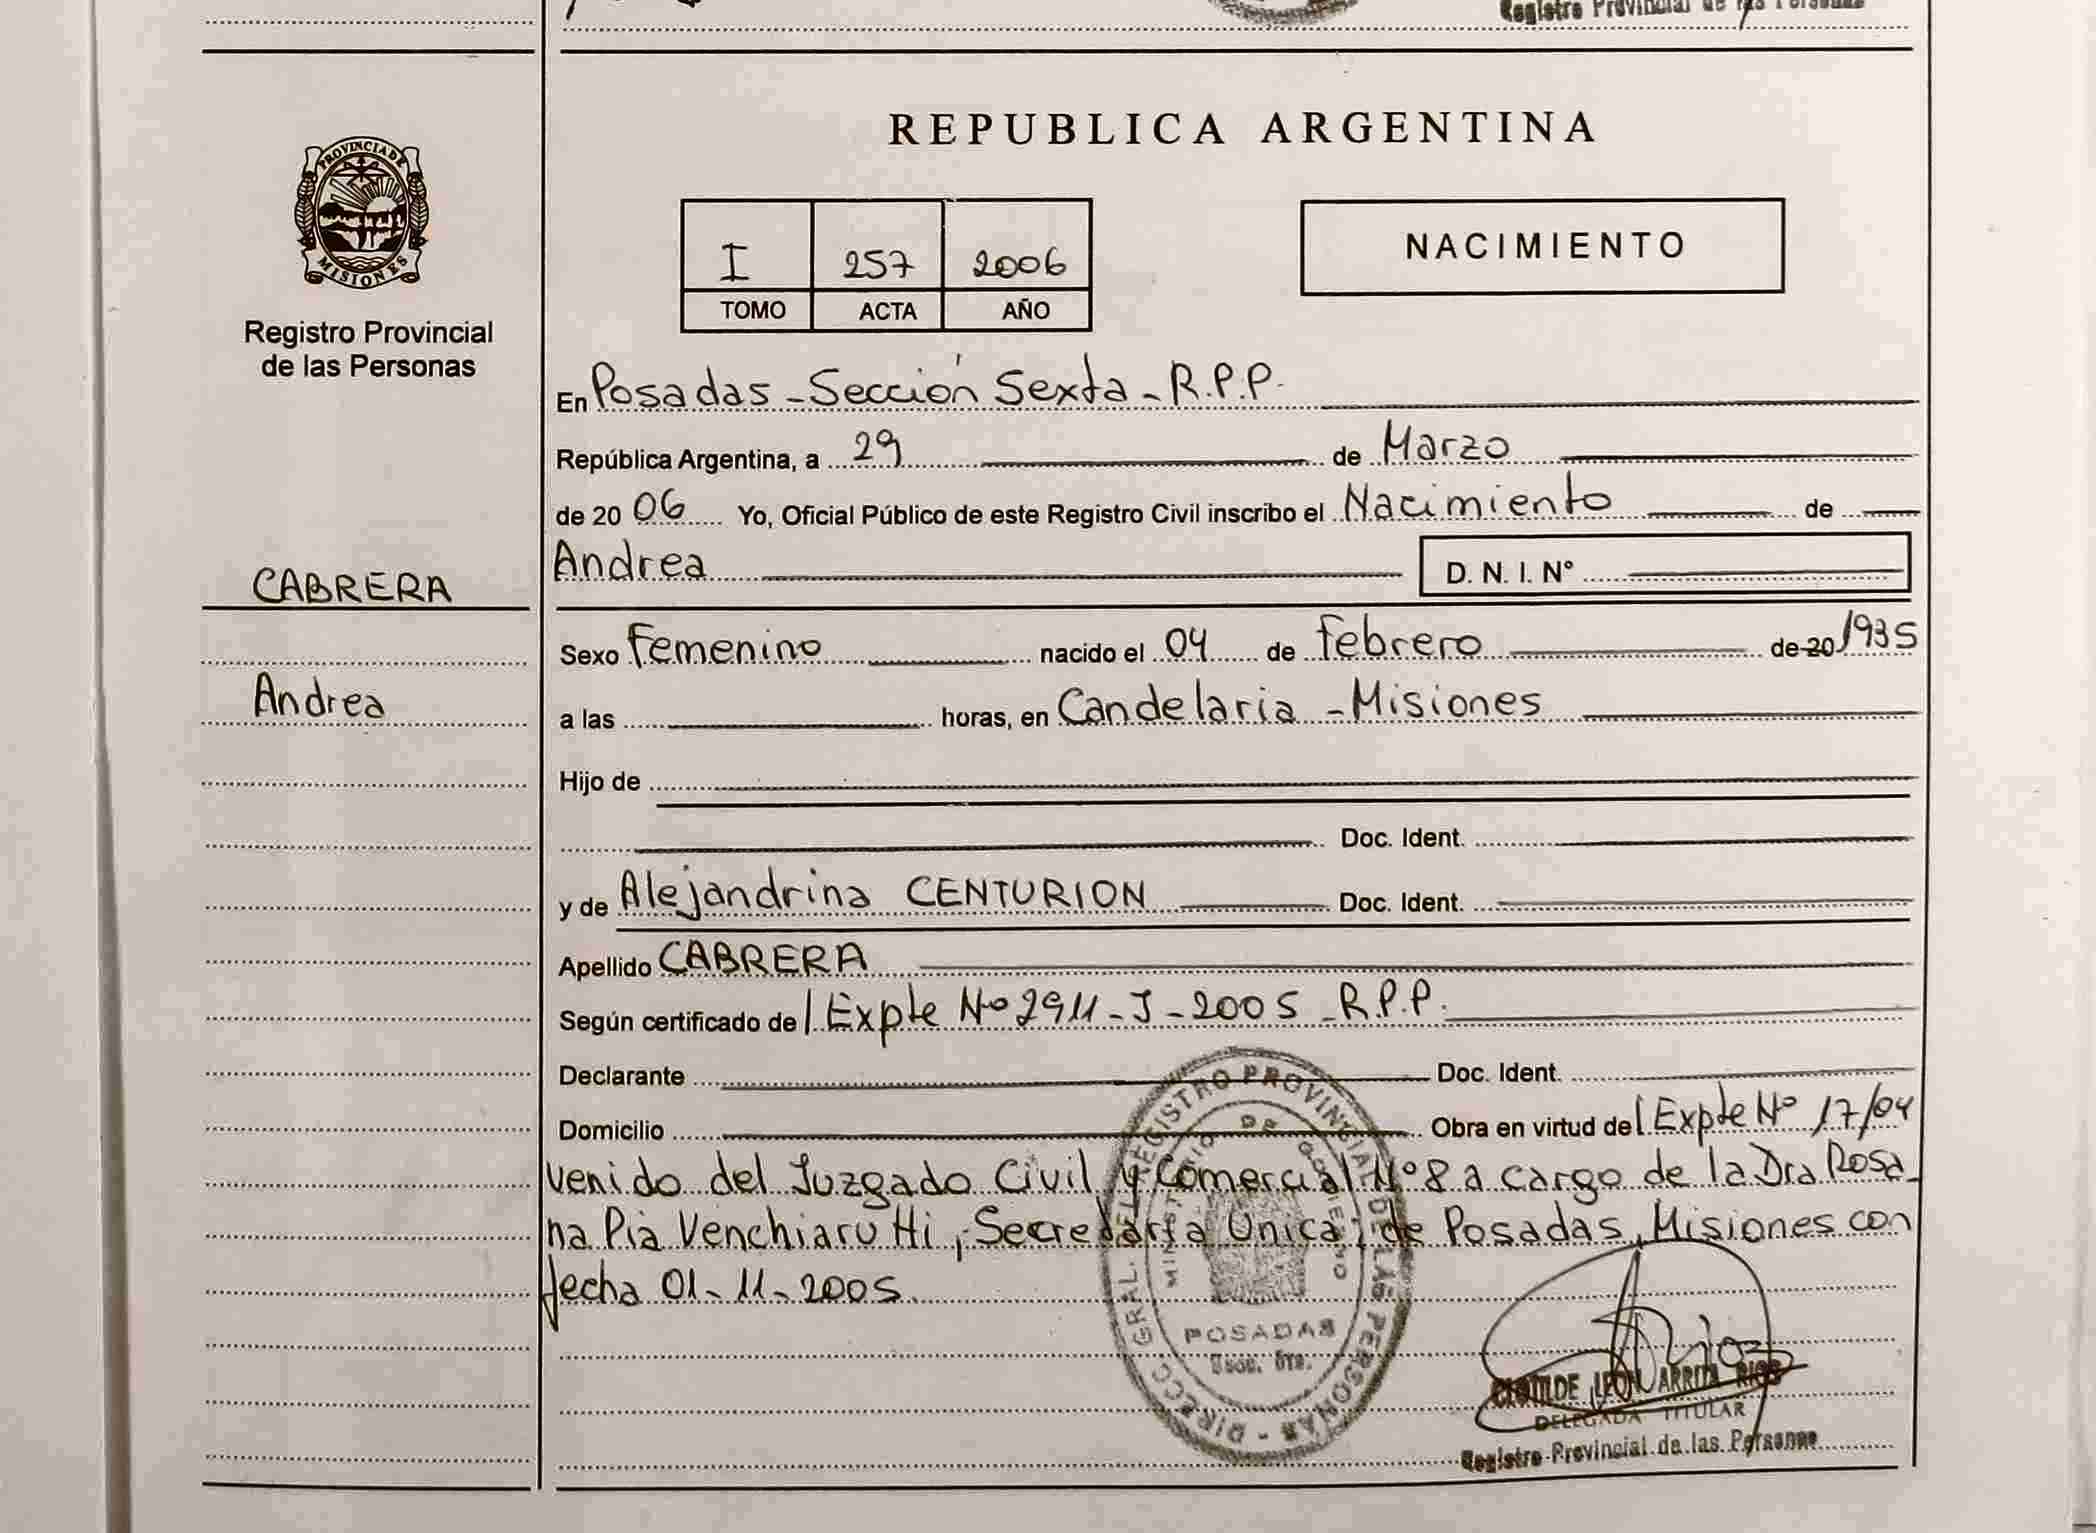 Registro Provincial de las Personas
REPUBLICA ARGENTINA
PROVINCIA DE
MISIONES
Registro Provincial
de las Personas
I 257 2006
TOMO ACTA AÑO
NACIMIENTO
En Posadas - Sección Sexta - R.P.P.
República Argentina, a 29 de Marzo
de 20 06 Yo, Oficial Público de este Registro Civil inscribo el Nacimiento de
CABRERA
Andrea D. N. I. Nº
Sexo Femenino nacido el 04 de Febrero de 20 1935
Andrea
a las horas, en Candelaria - Misiones
Hijo de
Doc. Ident.
y de Alejandrina CENTURION Doc. Ident.
Apellido CABRERA
Según certificado de l Expte Nº 2911-J-2005 - R.P.P.
Declarante Doc. Ident.
Domicilio Obra en virtud de l Expte Nº 17/04
venido del Juzgado Civil y Comercial Nº 8 a cargo de la Dra Rosa-
na Pia Venchiarutti, Secretaría Unica, de Posadas, Misiones con
fecha 01-11-2005
DIRECC GRAL. DEL REGISTRO PROVINCIAL DE LAS PERSONAS
MINISTERIO DE GOBIERNO
POSADAS
Secc. 6ta.
CLOTILDE LEON ARRITA RIOS
DELEGADA TITULAR
Registro Provincial de las Personas